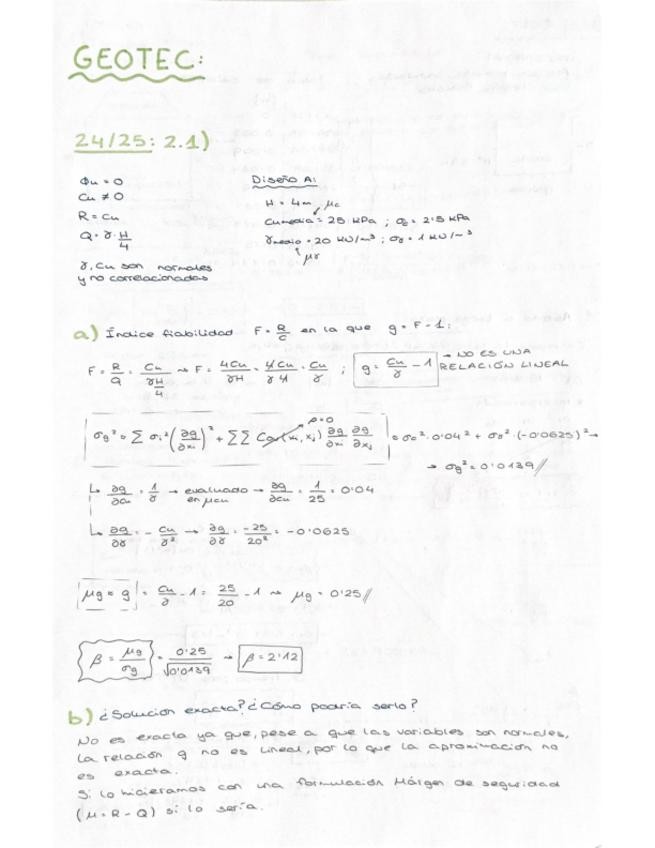 GEOTEC:
24/25: 2.1)
Φu = 0
Cu ≠ 0
R = Cu
Q = γ · H/4
γ, Cu son normales
y no correlacionadas
Diseño A:
H = 4m μc
Cu media = 25 KPa ; σc = 2'5 KPa
γ medio = 20 KN/m³ ; σγ = 1 KN/m³
μγ
a) Índice fiabilidad F = R/C en la que g = F - 1:
F = R/Q = Cu/(γH/4) → F = 4Cu/γH = 4Cu/γ4 = Cu/γ ; g = Cu/γ - 1 → NO ES UNA
RELACIÓN LINEAL
ρ=0
σg² = Σ σi² (∂g/∂xi)² + ΣΣ Cov(xi, xj) ∂g/∂xi ∂g/∂xj = σc² · 0'04² + σγ² · (-0'0625)² →
→ σg² = 0'0139//
↳ ∂g/∂cu = 1/γ → evaluado en μcu → ∂g/∂cu = 1/25 = 0'04
↳ ∂g/∂γ = - Cu/γ² → ∂g/∂γ = -25/20² = -0'0625
μg = g = Cu/γ - 1 = 25/20 - 1 → μg = 0'25//
β = μg/σg = 0'25/√0'0139 → β = 2'12
b) ¿Solución exacta? ¿Cómo podría serlo?
No es exacta ya que, pese a que las variables son normales,
la relación g no es lineal, por lo que la aproximación no
es exacta.
Si lo hicieramos con una formulación Márgen de seguridad
(M = R - Q) sí lo sería.